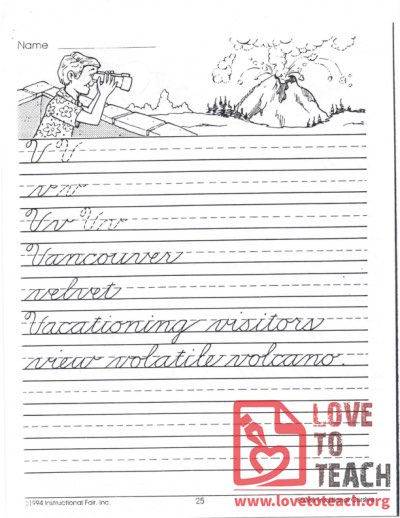 Name
V V
v v
Vv Vv
Vancouver
velvet
Vacationing visitors
view volatile volcano.
LOVE
TO
TEACH
www.lovetoteach.org
©1994 Instructional Fair, Inc.
25